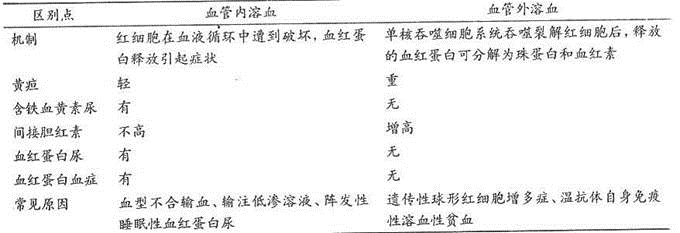 区别点 血管内溶血 血管外溶血
机制 红细胞在血液循环中遭到破坏,血红蛋白释放引起症状 单核吞噬细胞系统吞噬裂解红细胞后,释放的血红蛋白可分解为珠蛋白和血红素
黄疸 轻 重
含铁血黄素尿 有 无
间接胆红素 不高 增高
血红蛋白尿 有 无
血红蛋白血症 有 无
常见原因 血型不合输血、输注低渗溶液、阵发性睡眠性血红蛋白尿 遗传性球形红细胞增多症、温抗体自身免疫性溶血性贫血